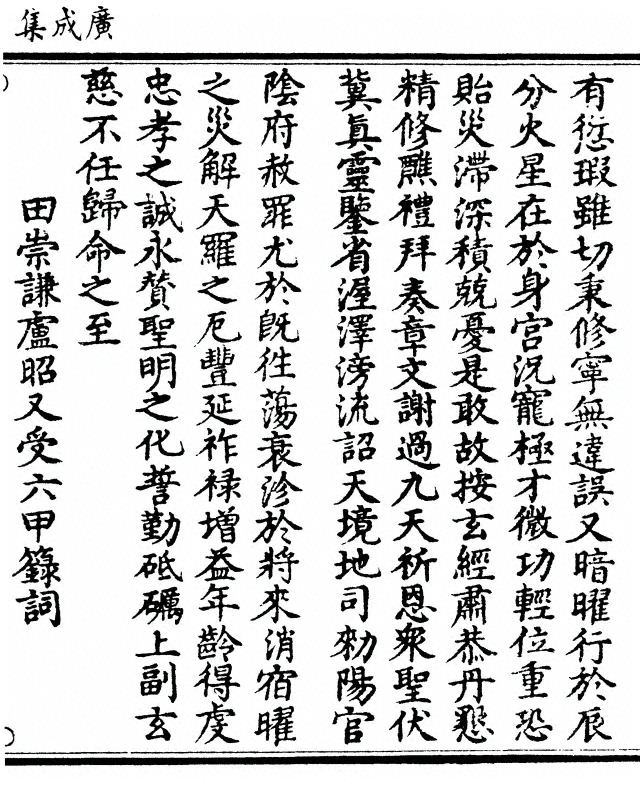 廣成集
有愆瑕雖切秉修寧無違誤又暗曜行於辰
分火星在於身宮況寵極才微功輕位重恐
貽災滯深積兢憂是敢故按玄經肅恭丹懇
精修醮禮拜奏章文謝過九天祈恩衆聖伏
冀真靈鑒省渥澤滂流詔天境地司勑陽官
陰府赦罪尤於旣徃蕩衰沴於將來消宿曜
之災解天羅之厄豐延祚禄增益年齡得虔
忠孝之誠永贊聖明之化誓勤砥礪上副玄
慈不任歸命之至
田崇謙盧昭又受六甲籙詞